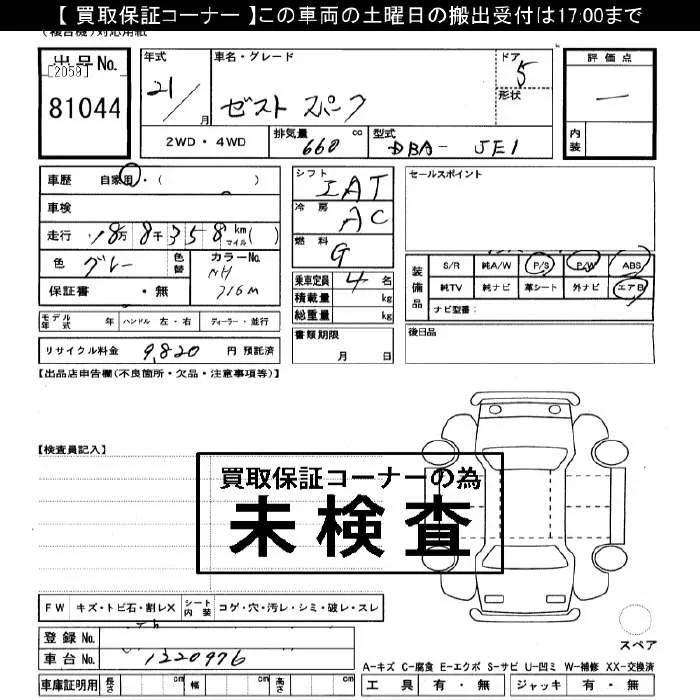 【 買取保証コーナー 】この車両の土曜日の搬出受付は17:00まで
(複合機)対応用紙
出品No.
[2059]
81044
年式
21/
月
車名・グレード
ゼスト スパーク
ドア
5
形状
評価点
—
内装
2WD・4WD
排気量
660
cc
型式
DBA- JE1
車歴 自家用・( )
車検
走行 18万 8千 358 km マイル( )
色 グレー
色替
カラーNo.
NH
716M
保証書 ・ 無
シフト
IAT
冷房
AC
燃料
G
乗車定員 4 名
積載量 kg
総重量 kg
書類期限
月 日
セールスポイント
装備品
S/R 純A/W P/S P/W ABS
純TV 純ナビ 革シート 外ナビ エアB
ナビ型番:
後日品
モデル年式 年 ハンドル 左・右 ディーラー・並行
リサイクル料金 9,820 円 預託済
【出品店申告欄(不良箇所・欠品・注意事項等)】
【検査員記入】
買取保証コーナーの為
未検査
FW キズ・トビ石・割レX シート内装 コゲ・穴・汚レ・シミ・破レ・スレ
登録 No.
車台 No. 1220976
車庫証明用 長さ cm 幅 cm 高さ cm
スペア
A-キズ C-腐食 E-エクボ S-サビ U-凹ミ W-補修 XX-交換済
工具 有・無 ジャッキ 有・無